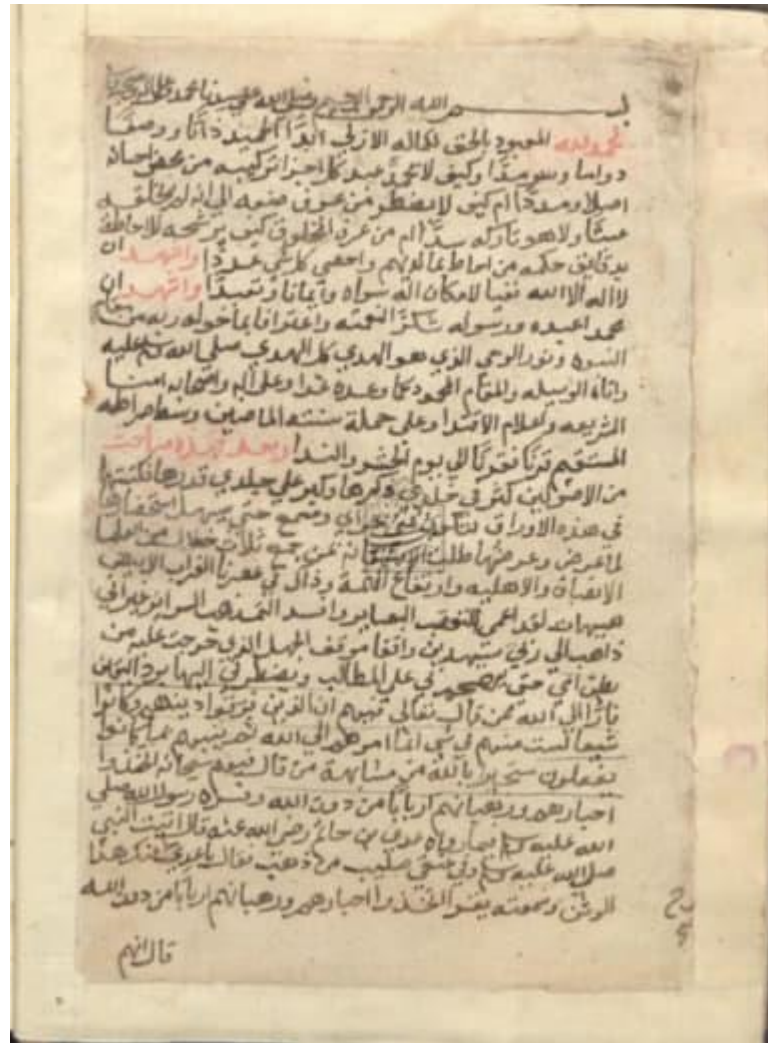 بسم الله الرحمن الرحيم وصلى الله على سيدنا محمد وعلى اله وصحبه
نحمد الله المعبود بالحق لكماله الازلي ابدا الحميد ذاتا ووصفا
دواما وسرمدا وكيف لا يحمد عبد كل اجزا تركيبه من محض احسانه
اصلا ومددا ام كيف لا يضطر من عرف صنعه الى انه لم يخلقه
عبثا ولا هو تاركه سدا ام من عرف المخلوق كيف يرشحه للاحاطة
بدقايق حكمه من احاط بما لديهم واحصى كل شي عددا واشهد ان
لا اله الا الله نفيا لامكان اله سواه وايمانا وتعبدا واشهد ان
محمدا عبده ورسوله شكرا لنعمته واعترافا بما خوله ربه من
النبوه ونور الوحي الذي هو الهدي كل الهدي صلى الله وسلم عليه
واتاه الوسيله والمقام المحمود كما وعده غدا وعلى اله واصحابه امنا
الشريعه واعلام الاقتدا وعلى حملة سنته الماضين وسط صراطه
المستقيم قرنا فقرنا الى يوم الحشر والندا وبعد فهذه مباحث
من الاصولين كثر في خلدي ذكرها وكبر على جلدي قدرها فكتبتها
في هذه الاوراق لتكون حتى يسهل
لما عرض وعرضها طلب عن جمع ثلاث خصال
الانصاف والاهليه وارتفاع الهمة وذلك في عصرنا الغراب الابيض
هيهات لقد اعمى التعصب البصاير وافسد التمذهب السراير غير اني
ذاهب الى ربي سيهدين واقفا موقف الجهل الذي خرجت عليه من
بطن امي حتى في على المطالب ويضطرني اليها برد اليقين
فارا الى الله ممن قال تعالى فيهم ان الذين فرقوا دينهم وكانوا
شيعا لست منهم في شي انما امرهم الى الله ثم ينبيهم بما كانوا
يفعلون مستجيرا بالله من مشابهة من قال فيهم سبحانه اتخذوا
احبارهم ورهبانهم اربابا من دون الله وفسره رسول الله صلى
الله عليه وسلم فيما رواه عدي بن حاتم رضي الله عنه قال اتيت النبي
صلى الله عليه وسلم وفي عنقي صليب من ذهب فقال يا عدي اطرح عنك هذا
الوثن وسمعته يقرا اتخذوا احبارهم ورهبانهم اربابا من دون الله
قال انهم